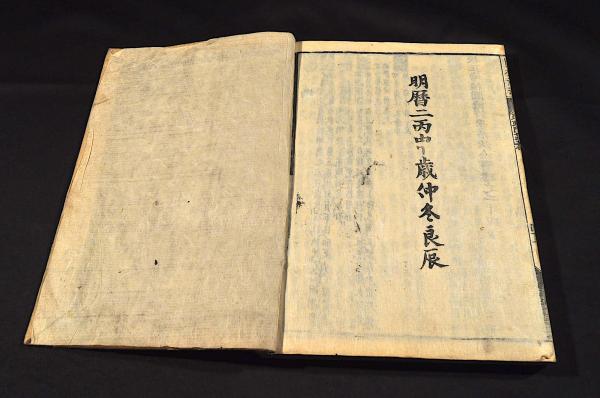 明暦二丙申歳仲冬良辰